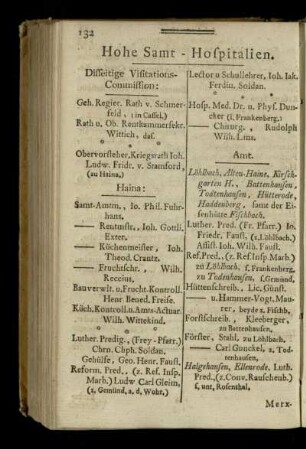 132
Hohe Samt-Hospitalien.
Disseitige Visitations-
Commission:
Geh. Regier. Rath v. Schmer-
feld, (in Cassel,)
Rath u. Ob. Rentkammersekr.
Wittich, das.
Obervorsteher, Kriegsrath Joh.
Ludw. Fridr. v. Stamford,
(zu Haina,)
Haina:
Samt-Amtm., Jo. Phil. Fuhr-
hans,
—— Rentmstr., Joh. Gottli.
Exter.
—— Küchenmeister, Joh.
Theod. Crantz.
—— Fruchtschr., Wilh.
Reccius,
Bauverwlt u. Frucht-Kontroll.
Henr Beoed. Freise.
Küch. Kontroll. u. Amts-Actuar.
Wilh. Wittekind.
Luther. Predig., (Frey-Pfarr.)
Chrn. Chph. Soldan.
Gehülfe, Geo. Henr. Faust,
Reform. Pred., (z. Ref. Insp.
Marb.) Ludw Carl Gleim,
(z. Gemünd, a, d, Wohr,)
Lector u Schullehrer, Joh. Jak.
Ferdin. Soldan.
Hosp. Med. Dr. u. Phys. Dun-
cker (s. Frankenberg.)
—— Chirurg., Rudolph
Wilh. Linz.
Amt.
Löhlbach, Alten-Haine, Kirsch-
garten H., Battenhausen,
Todtenhausen, Hütterode,
Haddenberg, samt der Ei-
senhütte Fischbach.
Luther. Pred. (Fr. Pfarr.) Jo.
Friedr. Faust, (z. Löhlbach,)
Assist. Joh. Wilh. Faust.
Ref. Pred., (z Ref. Insp. Marb.)
zu Löhlbach, s. Frankenberg,
zu Todenhausen, s. Gemünd,
Hüttenschreib., Lic. Günst.
—— u. Hammer-Vogt, Mau-
rer, beyde z. Fischb,
Forstschreib., Kleeberger,
zu Battenhausen,
Förster, Stahl, zu Löhlbach.
—— Carl Gunckel, z. Tod-
tenhausen,
Halgehausen, Ellenrode, Luth.
Pred., (z. Conv. Rauschenb.)
s, unt, Rosenthal.
Merx-